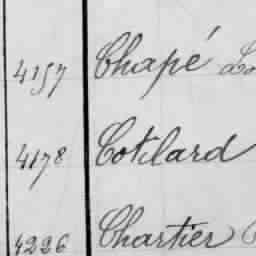 4157 Chapé
4178 Cotilard
4226 Chartier